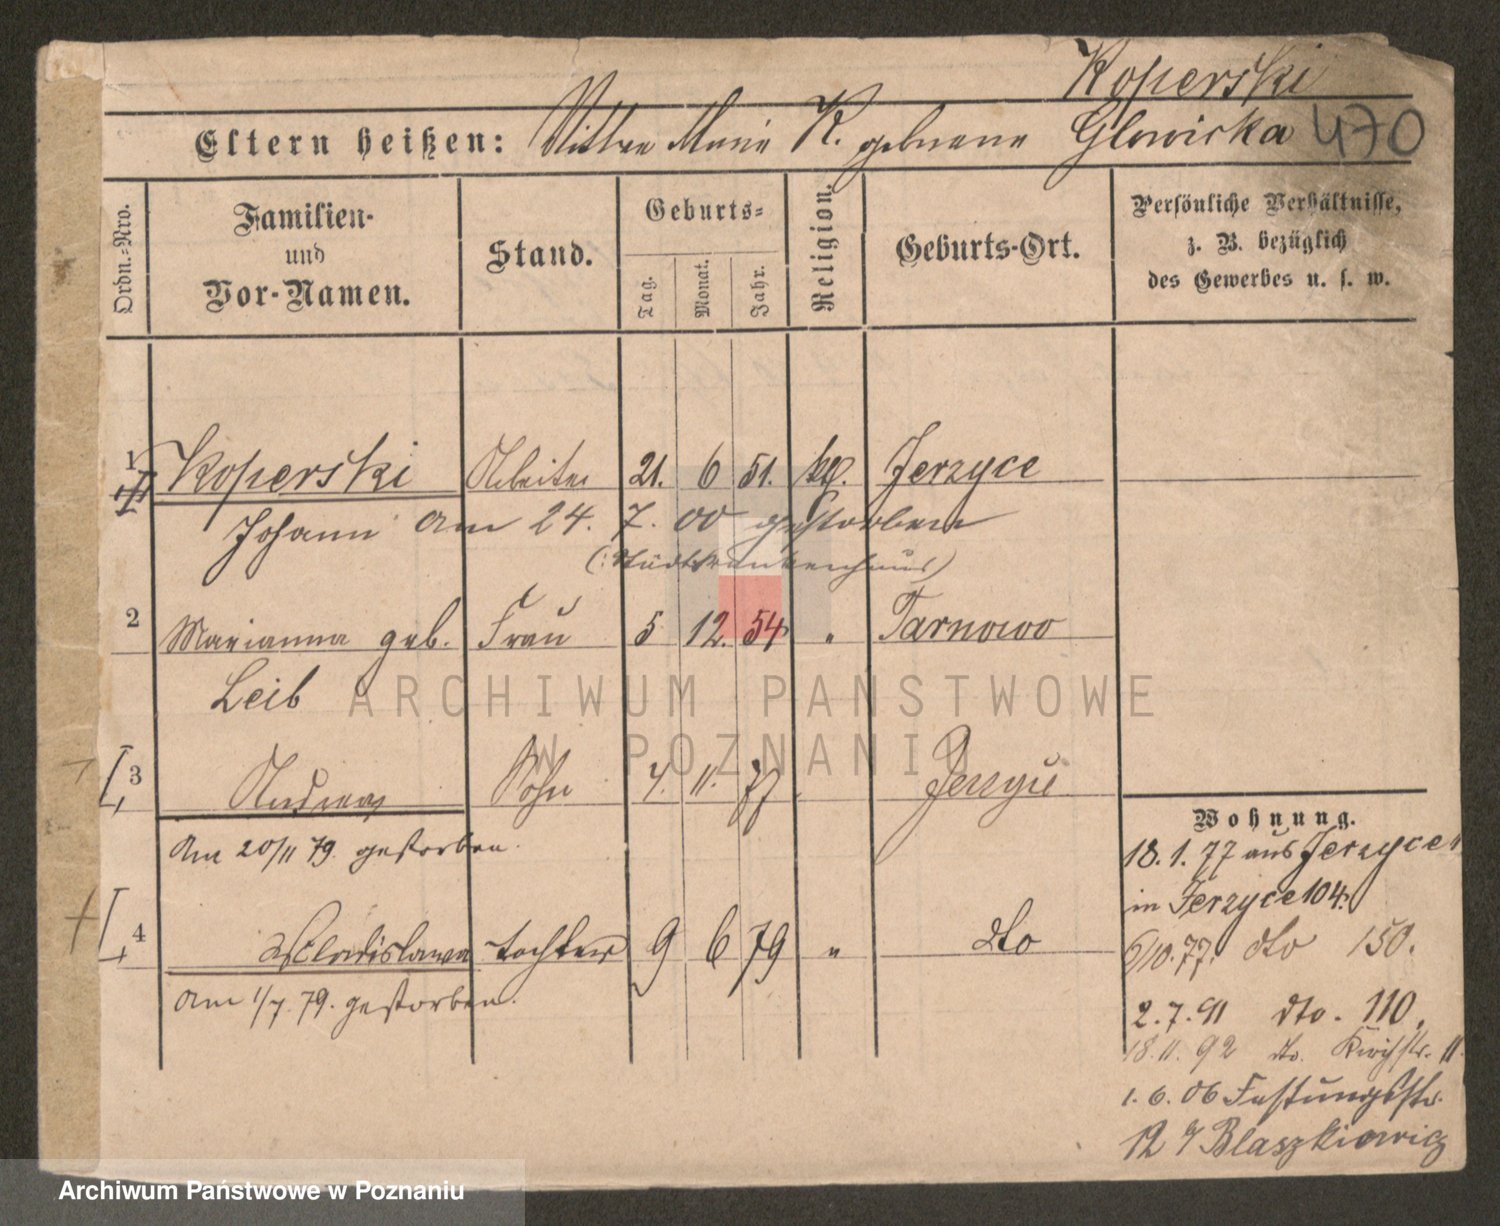 Koperski
Eltern heißen: Wittwe Marie K. geborene Glowicka 470
Ordn.-Nro.
Familien-
und
Vor-Namen.
Stand.
Geburts-
Tag.
Monat.
Jahr.
Religion.
Geburts-Ort.
Persönliche Verhältnisse,
z. B. bezüglich
des Gewerbes u. s. w.
1 Koperski Arbeiter 21. 6 51. kg. Jerzyce
Johann am 24. 7. 00 gestorben
(: Stadtkrankenhaus)
2 Marianna geb. Frau 5 12. 54 " Tarnowo
Leib
3 Andreas Sohn 4. 11. 77 Jerzyce
Am 20/11 79. gestorben.
4 Wladislawa tochter 9 6 79 " dto
Am 1/7. 79. gestorben.
Wohnung.
18. 1. 77 aus Jerzyce
in Jerzyce 104.
6/10. 77. dto 150.
2. 7. 91 dto. 110.
18. 11. 92 dto. Kirchstr. 11.
1. 6. 06 Festungsstr.
12 b/ Blaszkiowicz
ARCHIWUM PAŃSTWOWE
W POZNANIU
Archiwum Państwowe w Poznaniu